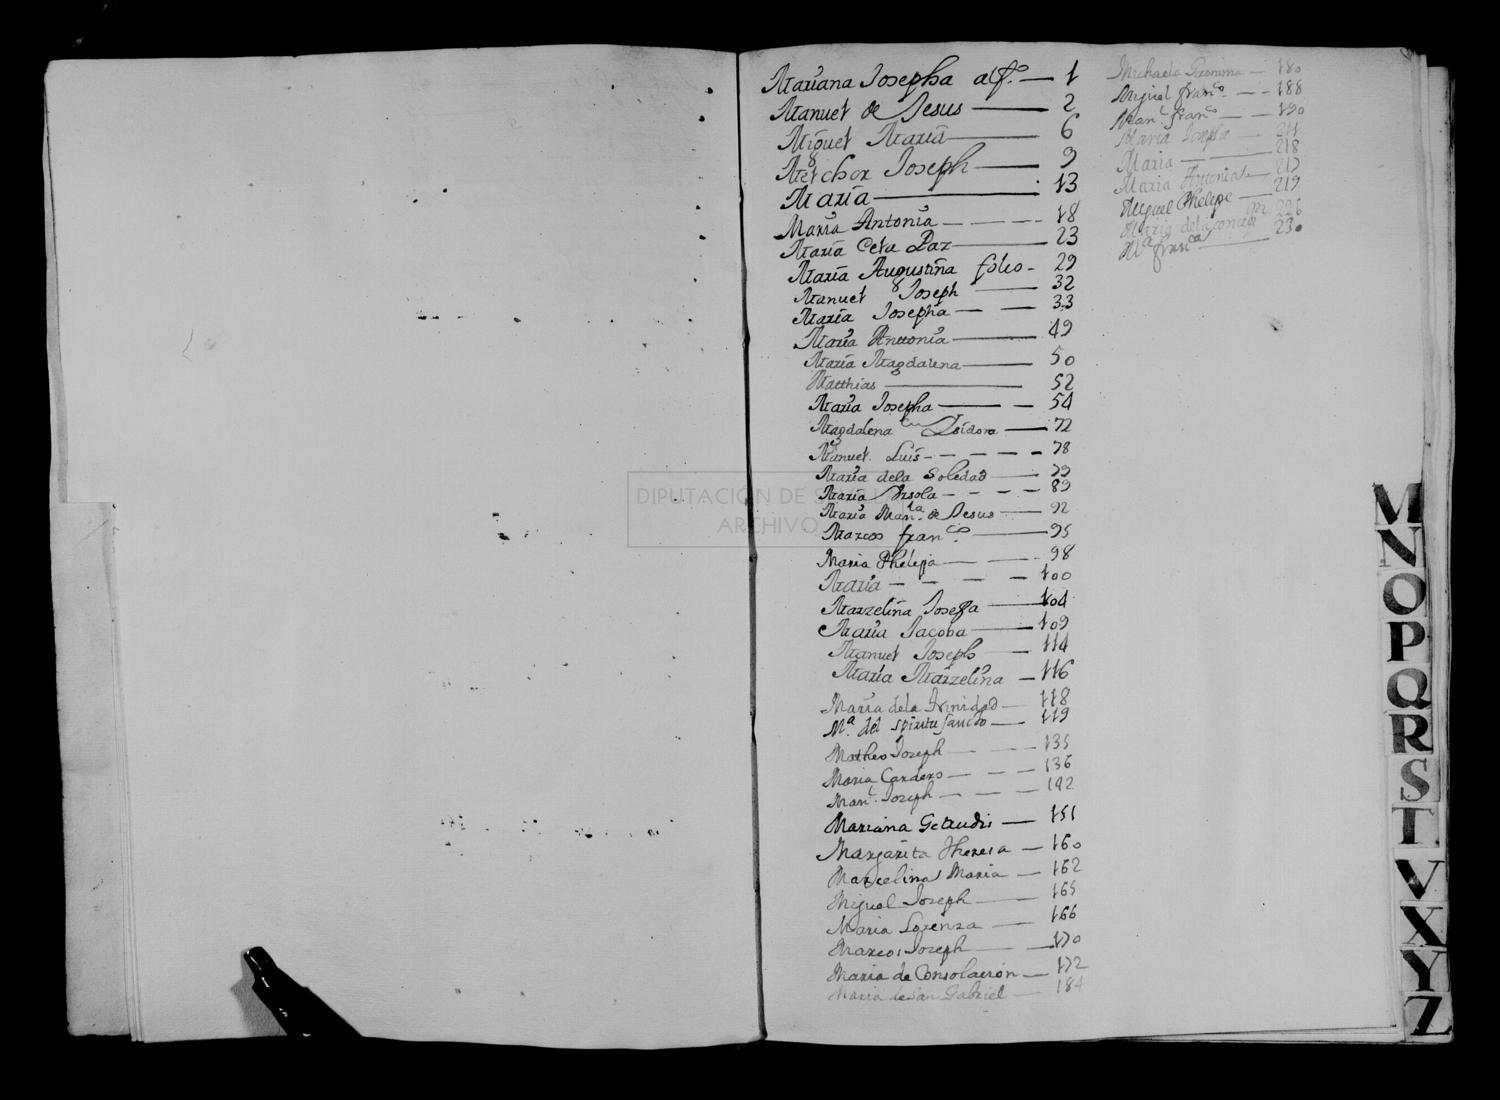 Mariana Josepha alf.º — 1
Manuel de Jesus — 2
Miguel Maria — 6
Melchor Joseph — 9
Maria — 13
Maria Antonia — — — 18
Maria Cela Paz — 23
Maria Augustina folio - 29
Manuel Joseph — 32
Maria Josepha — — 33
Maria Anttonia — 49
Maria Magdalena — 50
Matthias — 52
Maria Josepha — — 54
Magdalena Isidora — 72
Manuel Luis - - - - - 78
Maria dela Soledad — 79
Maria Ursola - - - - 89
Maria Man.la de Jesus — 92
Marcos fran.co — 95
Maria Phelipa — — 98
Maria — — — — 100
Marzelina Josefa — 104
Maria Jacoba — 109
Manuel Joseph — 114
Maria Marzelina — 116
Maria dela Trinidad — 118
M.a del spiritu sancto — 119
Matheo Joseph — — — 135
Maria Cardero — — — 136
Man.l Joseph — — — 142
Mariana Getrudis — 151
Margarita Theresa — 160
Marcelina Maria — 162
Miguel Joseph — 165
Maria Lorenza — 166
Marcos Joseph — 170
Maria de Consolacion — 172
Maria de San Gabriel — 184
Michaela Geronima — 180
Miguel fran.co — - 188
Man.l fran.co — — 190
Maria Josepha — 211
Maria — 218
Maria Antonia — 217
Miguel Phelipe — 219
Maria dela concep.on 226
M.a fran.ca — 230
M
N
O
P
Q
R
S
T
V
X
Y
Z
DIPUTACIÓN DE SEVILLA
ARCHIVO